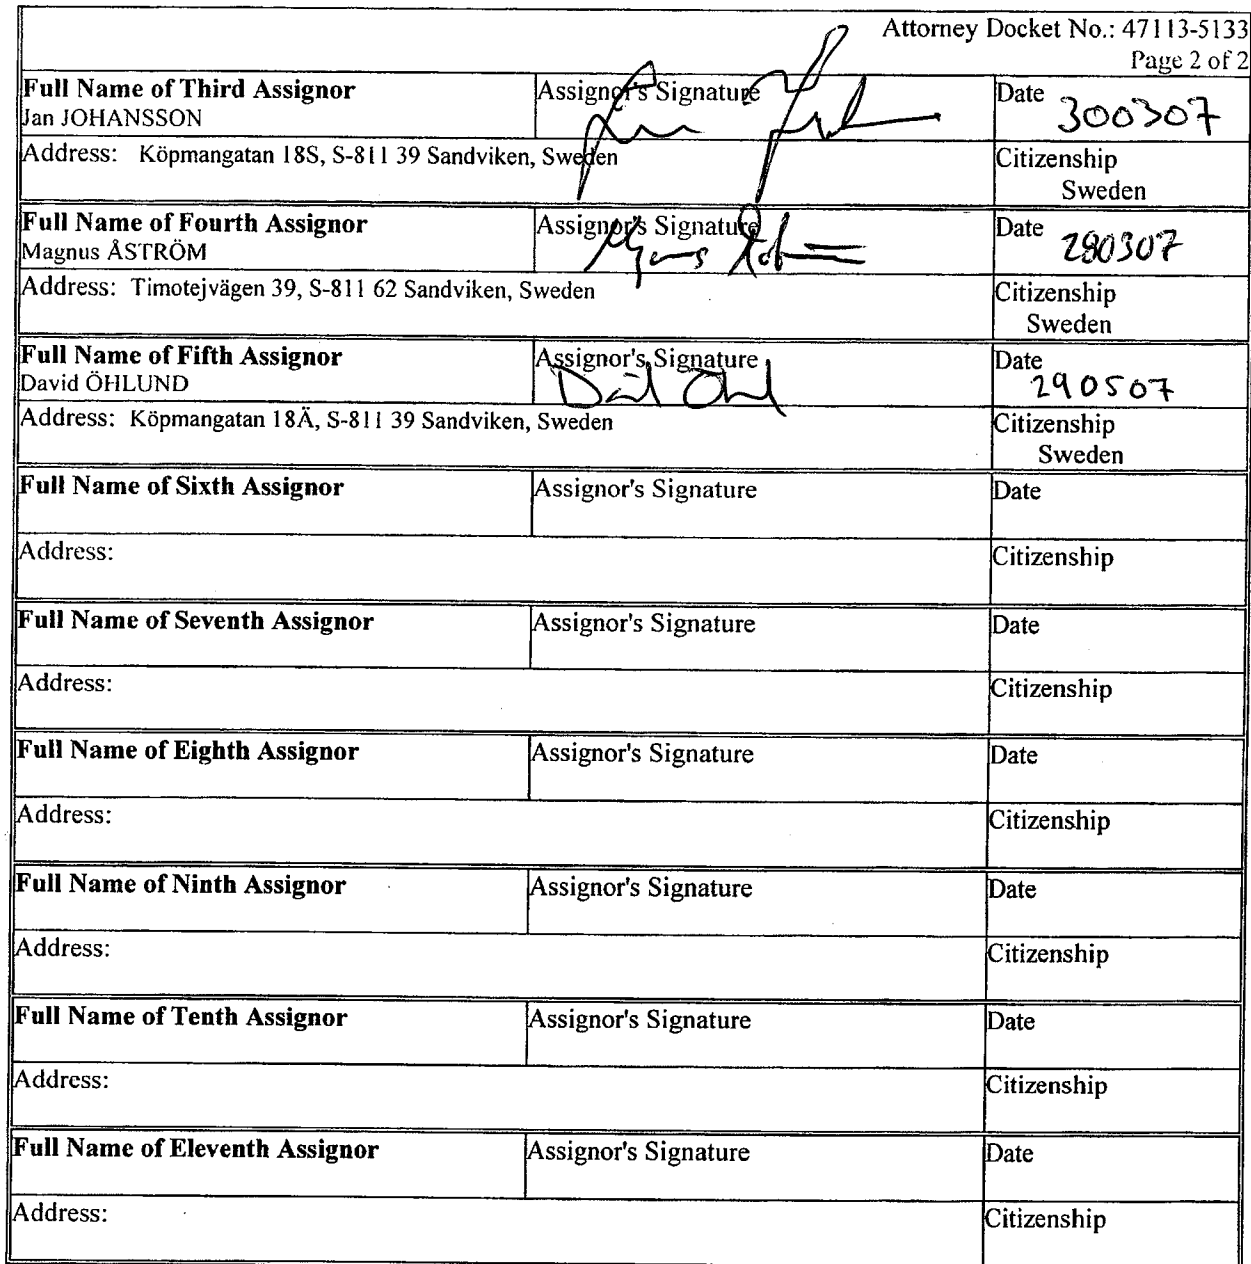 Attorney Docket No.: 47113-5133
Page 2 of 2
Full Name of Third Assignor Assignor's Signature Date 300307
Jan JOHANSSON
Address: Köpmangatan 18S, S-811 39 Sandviken, Sweden Citizenship
Sweden
Full Name of Fourth Assignor Assignor's Signature Date 280307
Magnus ÅSTRÖM
Address: Timotejvägen 39, S-811 62 Sandviken, Sweden Citizenship
Sweden
Full Name of Fifth Assignor Assignor's Signature Date
David ÖHLUND 290507
Address: Köpmangatan 18Ä, S-811 39 Sandviken, Sweden Citizenship
Sweden
Full Name of Sixth Assignor Assignor's Signature Date
Address: Citizenship
Full Name of Seventh Assignor Assignor's Signature Date
Address: Citizenship
Full Name of Eighth Assignor Assignor's Signature Date
Address: Citizenship
Full Name of Ninth Assignor Assignor's Signature Date
Address: Citizenship
Full Name of Tenth Assignor Assignor's Signature Date
Address: Citizenship
Full Name of Eleventh Assignor Assignor's Signature Date
Address: Citizenship